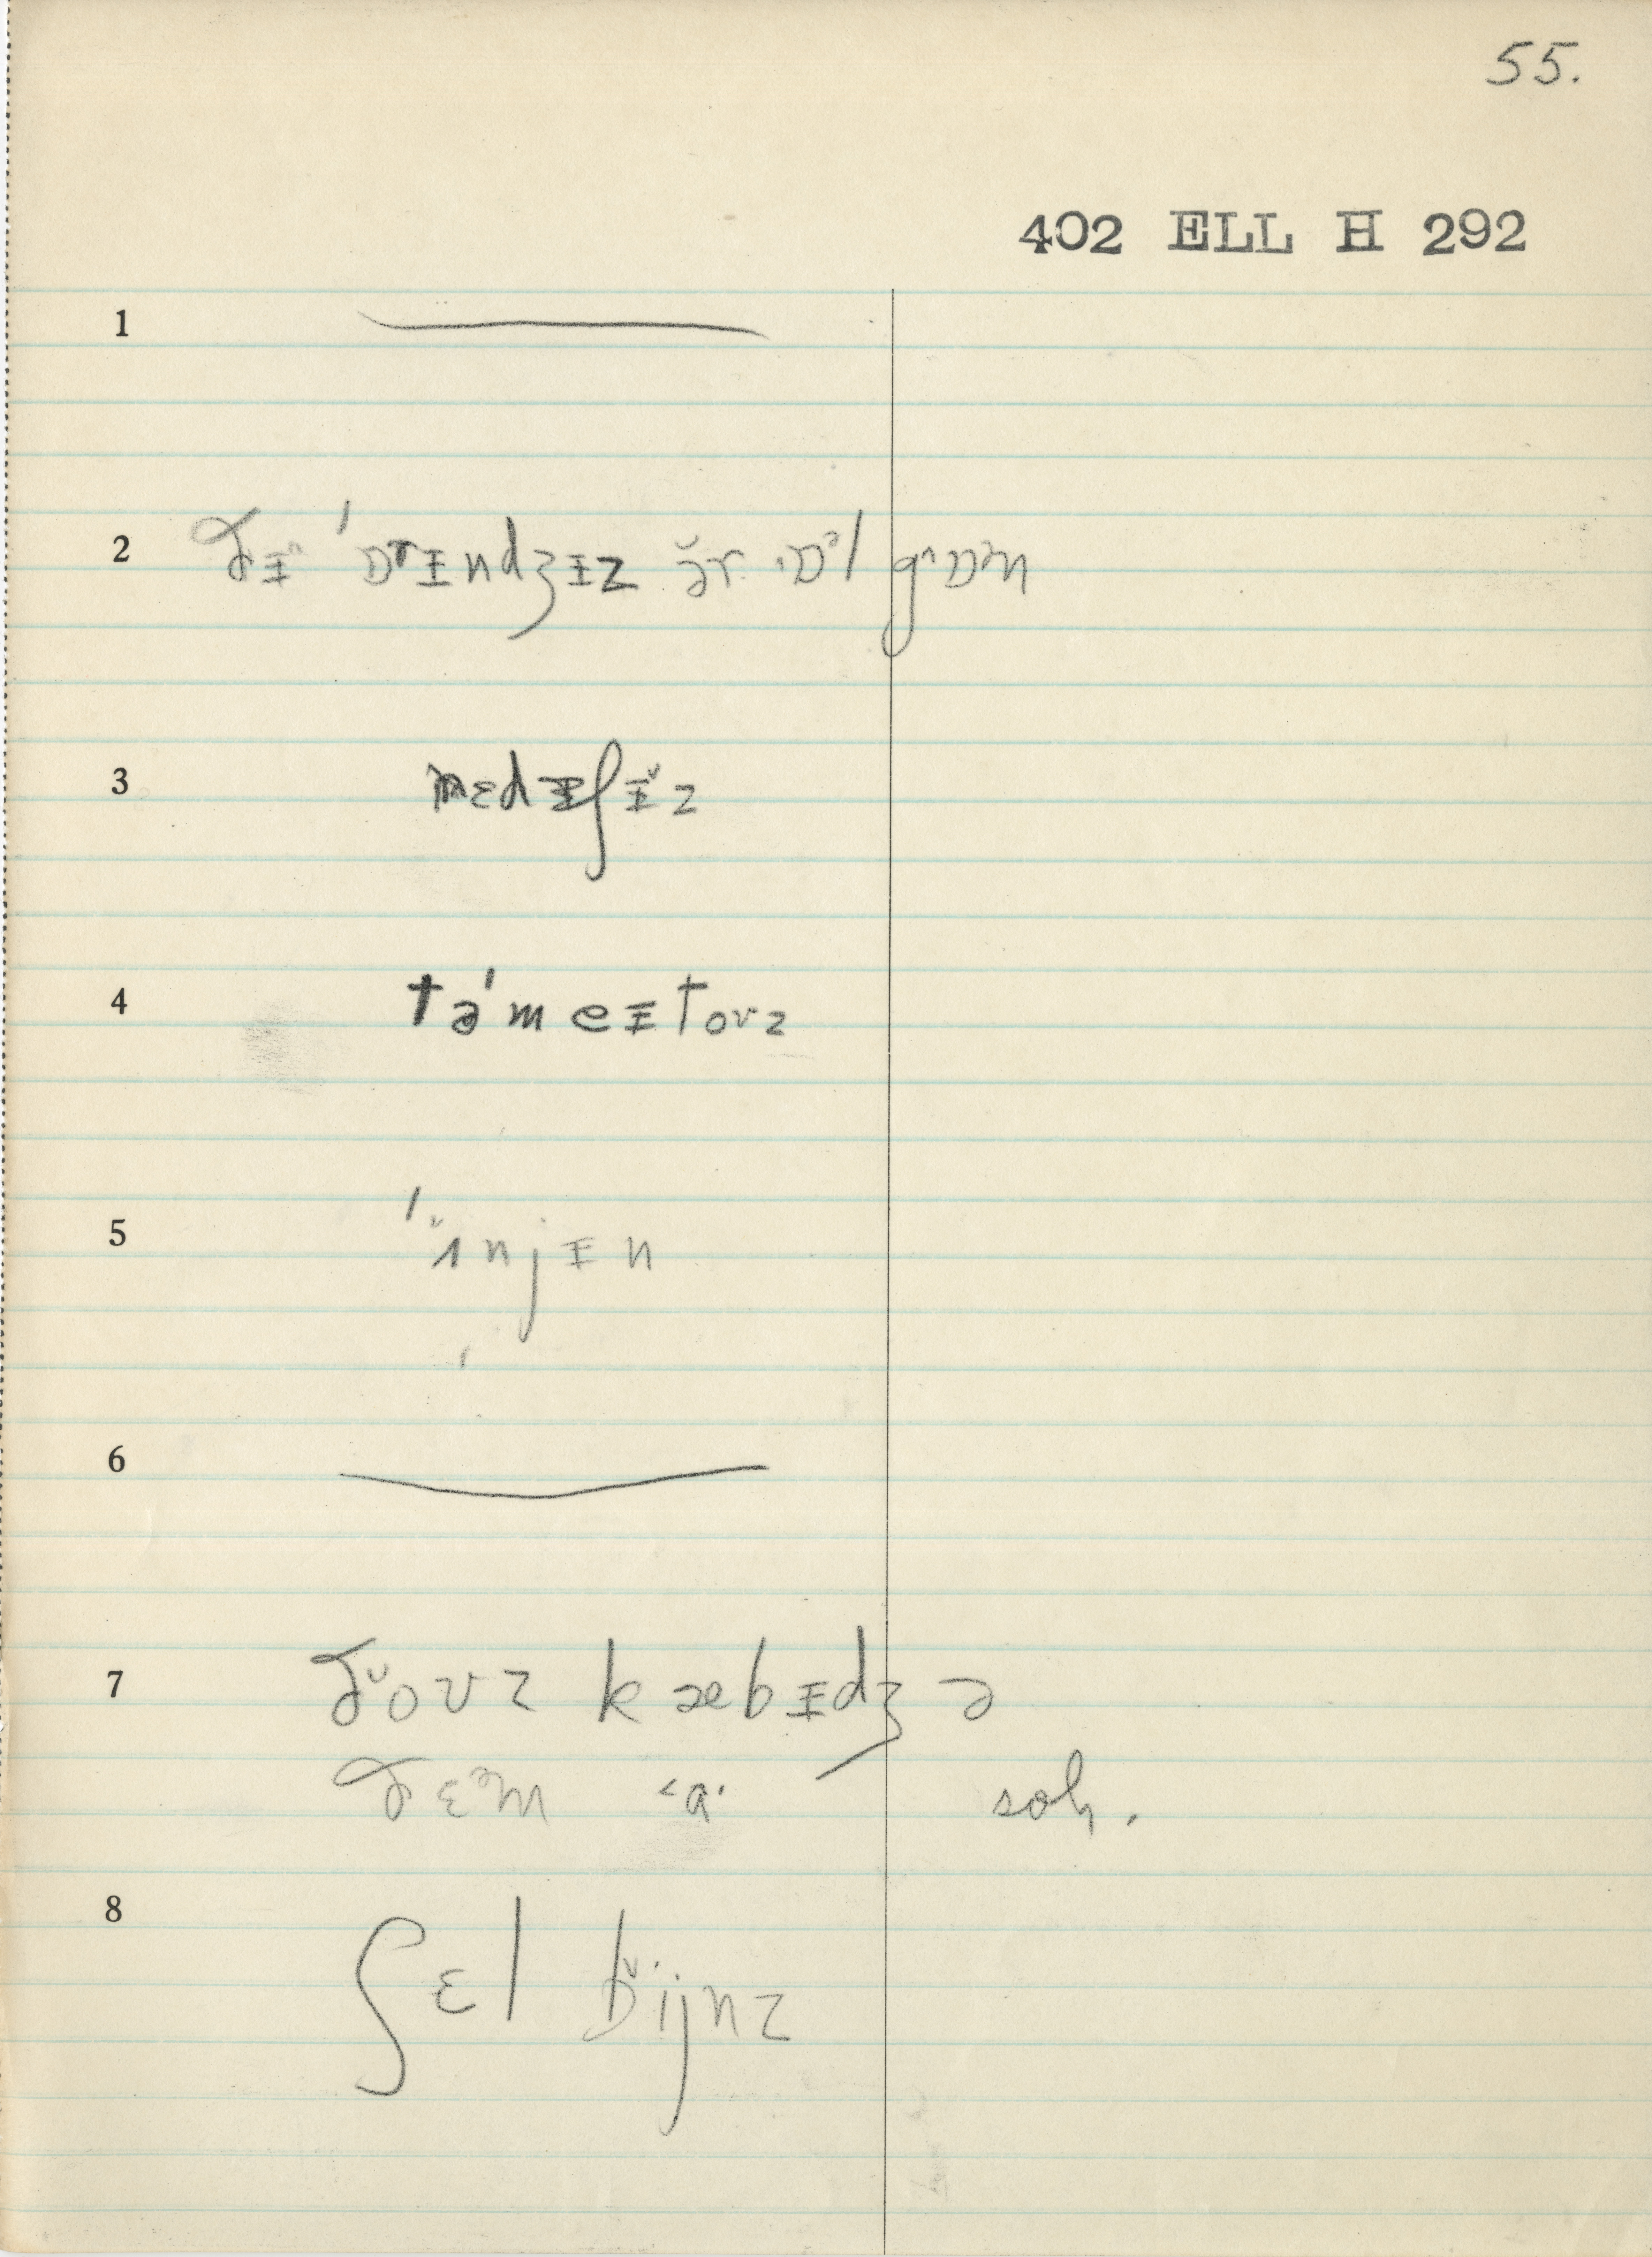 55.
402 ELL H 292
1
2 ðɪ̵ˇ ˈɒrɪ̵ndʒɪ̵z ə̆r ɒᵊl gˇɒᵊn
3 rɛdɪ̵ʃɪ̵ˇz
4 təˈmeɪ̵toʊz
5 ˈʌˇnjɪ̵n
6
7 ðˇoʊz kæbɪ̵dʒ ə
ðɛᵊm ˂a· sol̩.
8 ʃɛl bˇijnz